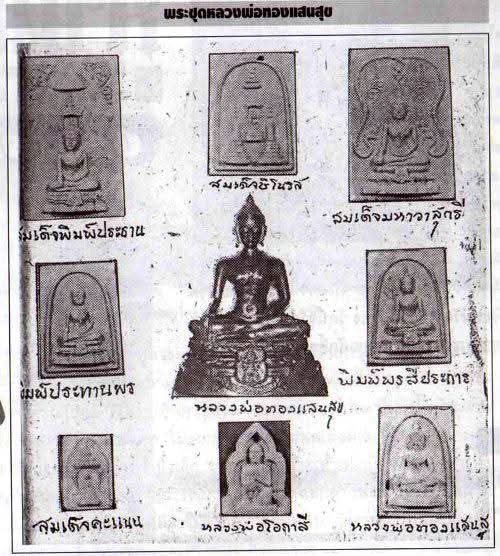 พระชุดหลวงพ่อทองแสนสุข
สมเด็จพิมพ์ประธาน
สมเด็จชินรส
สมเด็จมหาวาสุกรี
พิมพ์ประทานพร
หลวงพ่อทองแสนสุข
พิมพ์พรสี่ประการ
สมเด็จคะแนน
หลวงพ่อโอภาสี
หลวงพ่อทองแสนสุ